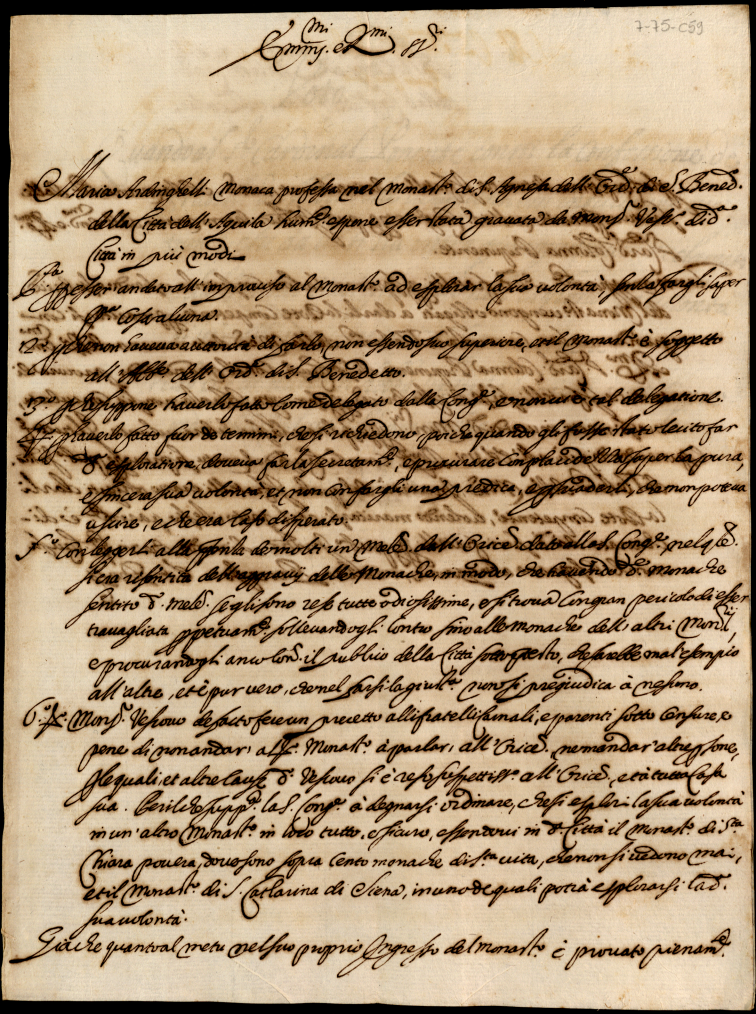 7-75-C59
Em.mi e R.mi SS.ri
Maria Ardinghelli Monaca professa nel Monast.o di S. Agnesa dell' Ord.e di S. Bened.o
della Città dell' Aquila hum.te espone esser stata gravata da Mons.r Vesc.o di d.a
Città in più modi
P.a p esser andato all' improviso al Monast.o ad esplorar la sua volontà, senza fargli saper
p.a cosa alcuna.
2.o p che non haveva autorità di farlo, non essendo suo superiore, et il Monast.o è soggetto
all' Abb.e dell' Ord.e di S. Benedetto.
3.o p che suppone haverlo fatto come delegato dalla Cong.e, e non v'era tal delegatione.
4.o p haverlo fatto fuor de termini, che si richiedono, poiche quando gli fosse stato lecito far
d.a esploratione, doveva farla secretam.te, e procurare con placidezza saper la pura,
e sincera sua volontà, et non con fargli una predica, e persuaderla, che non poteva
uscire, e che era caso disperato.
5.o Con leggerli alla pnza de molti un Mem.le dell' Orice dato alla S. Cong.e nel q.le
si era risentita dell' aggravij delle Monache, in modo, che havendo d.e monache
sentito d.o Mem.le se gli sono rese tutte odiosissime, e si trova in gran pericolo di esser
travagliata ppetuam.te sollevandogli contro sino alle monache dell' altri Mon.rij,
e procurandogli anco contro il publico della Città sotto ptesto, che sarebbe mal' esempio
all' altre, et è pur vero, che nel farsi la giust.a non si pregiudica à nesuno.
6.o Mons.r Vescovo de facto fece un precetto alli fratelli carnali, e parenti sotto censure, e
pene di non andar' a d.o Monast.o à parlar' all' Orice, ne mandar' altre psone,
p le quali, et altre cause d.o Vescovo si è reso suspettiss.o all' Orice, et à tutta Casa
sua. Perilche supp.ca la S. Cong.e à degnarsi ordinare, che si esplori la sua volontà
in un' altro Monast.o in loco tutto, e sicuro, essendovi in d.a Città il Monast.o di S.ta
Chiara povera, dove sono sopra cento monache di S.ta vita, che non si vedono mai,
et il Monast.o di S. Catharina di Siena, in uno de quali potrà esplorarsi la d.a
sua volontà.
Giache quanto al metu nel suo proprio Ingresso del Monast.o è provato pienam.te.